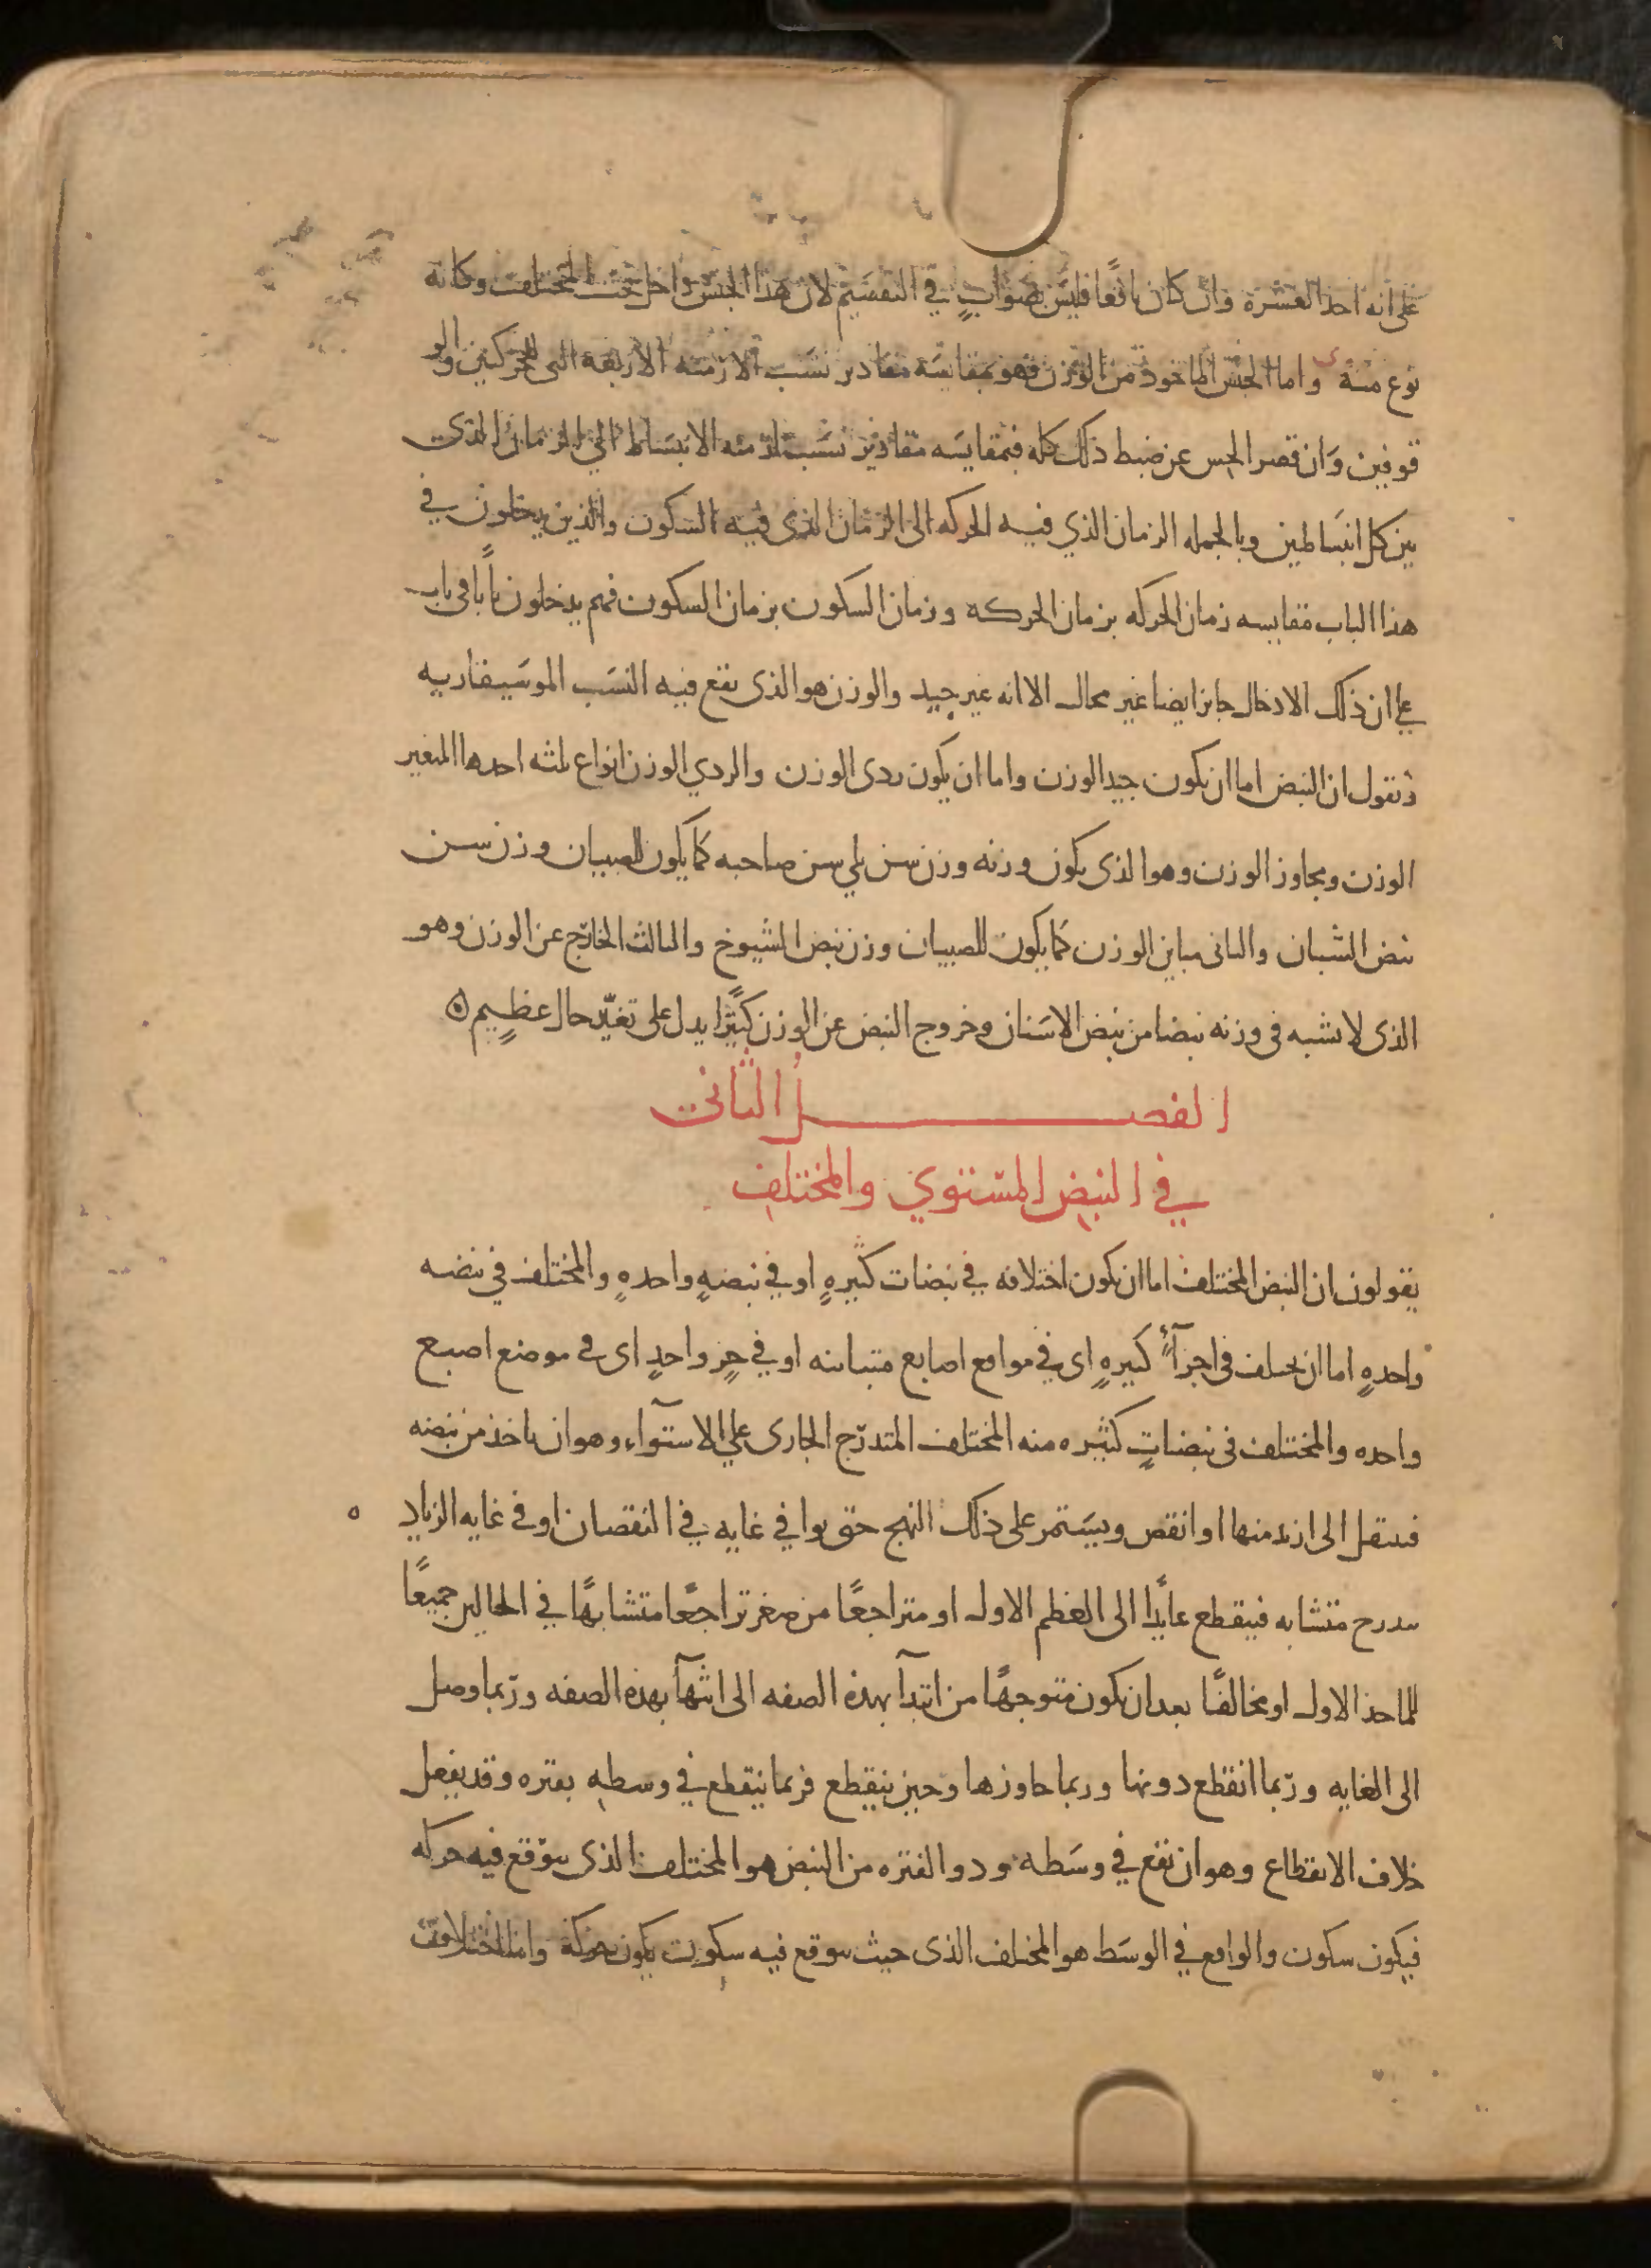 على انه احد العشرة وان كان نافعًا فليس بصوابٍ في التقسيم لان هذا الجنس داخل تحت المختلف وكانه
نوع منه واما الجنس الماخوذ من الوزن فهو بمقايسة مقادير نسب الازمنه الاربعة التى للحركتين والو
قوفين وَان قصر الحس عن ضبط ذلك كله فبمقايسَه مقادير نسَب ازمنه الانبسَاط الي الزمان الذي
بين كل انبسَاطين وبالجمله الزمان الذي فيه الحركه الى الزمان الذي فيه السكون والذين يدخلون في
هذا الباب مقايسه زمان الحركه بزمان الحركه وزمان السكون بزمان السكون فهم يدخلون بابًا في باب
علي ان ذلك الادخال جايز ايضا غير محال الا انه غير جيد والوزن هو الذى يقع فيه النسَب الموسَيقاريه
ونقول ان النبض اما ان يكون جيد الوزن واما ان يكون ردى الوزن والردي الوزن انواع ثلثه احدها المتغير
الوزن ومجاوز الوزن وهو الذى يكون وزنه وزن سن يلي سن صاحبه كما يكون للصبيان وزن سن
نبض الشبان والثانى مباين الوزن كما يكون للصبيان وزن نبض الشيوخ والثالث الخارج عن الوزن وهو
الذى لا يشبه فى وزنه نبضا من نبض الاسَنان وخروج النبض عن الوزن كثيرًا يدل على تغيّر حال عظيمٍ
الفصل الثاني
في النبض المستوي والمختلف
يقولون ان النبض المختلف اما ان يكون اختلافه في نبضات كثيرهٍ او في نبضهٍ واحدهٍ والمختلف في نبضه
واحدهٍ اما ان يختلف فى اجزآءٍ كثيرهٍ اى في مواقع اصابع متباينه او في جزٍ واحدٍ اى فى موضع اصبع
واحده والمختلف فى نبضاتٍ كثيره منه المختلف المتدرّج الجارى علي الاستوآء وهو ان ياخذ من نبضه
فينتقل الى ازيد منها او انقص ويسَتمر على ذلك النهج حتى يوافي غايه في النقصان او فى غايه الزياد ه
بتدرج متشابه فينقطع عايدًا الى العظم الاول او متراجعًا من صغر تراجعًا متشابهًا في الحالين جميعًا
للماخذ الاول او مخالفًا بعد ان يكون متوجهًا من ابتدآ بهذه الصفه الى انتهآ بهذه الصفه وربّما وصل
الى الغايه وربّما انقطع دونها وربما جاوزها وحين ينقطع فربما ينقطع في وسطه بفتره وقد يفعل
خلاف الانقطاع وهو ان تقع في وسَطه وذو الفتره من النبض هو المختلف الذى يتوقع فيه حركه
فيكون سكون والواقع في الوسَط هو المختلف الذى حيث يتوقع فيه سكون يكون حركة واما اختلاف